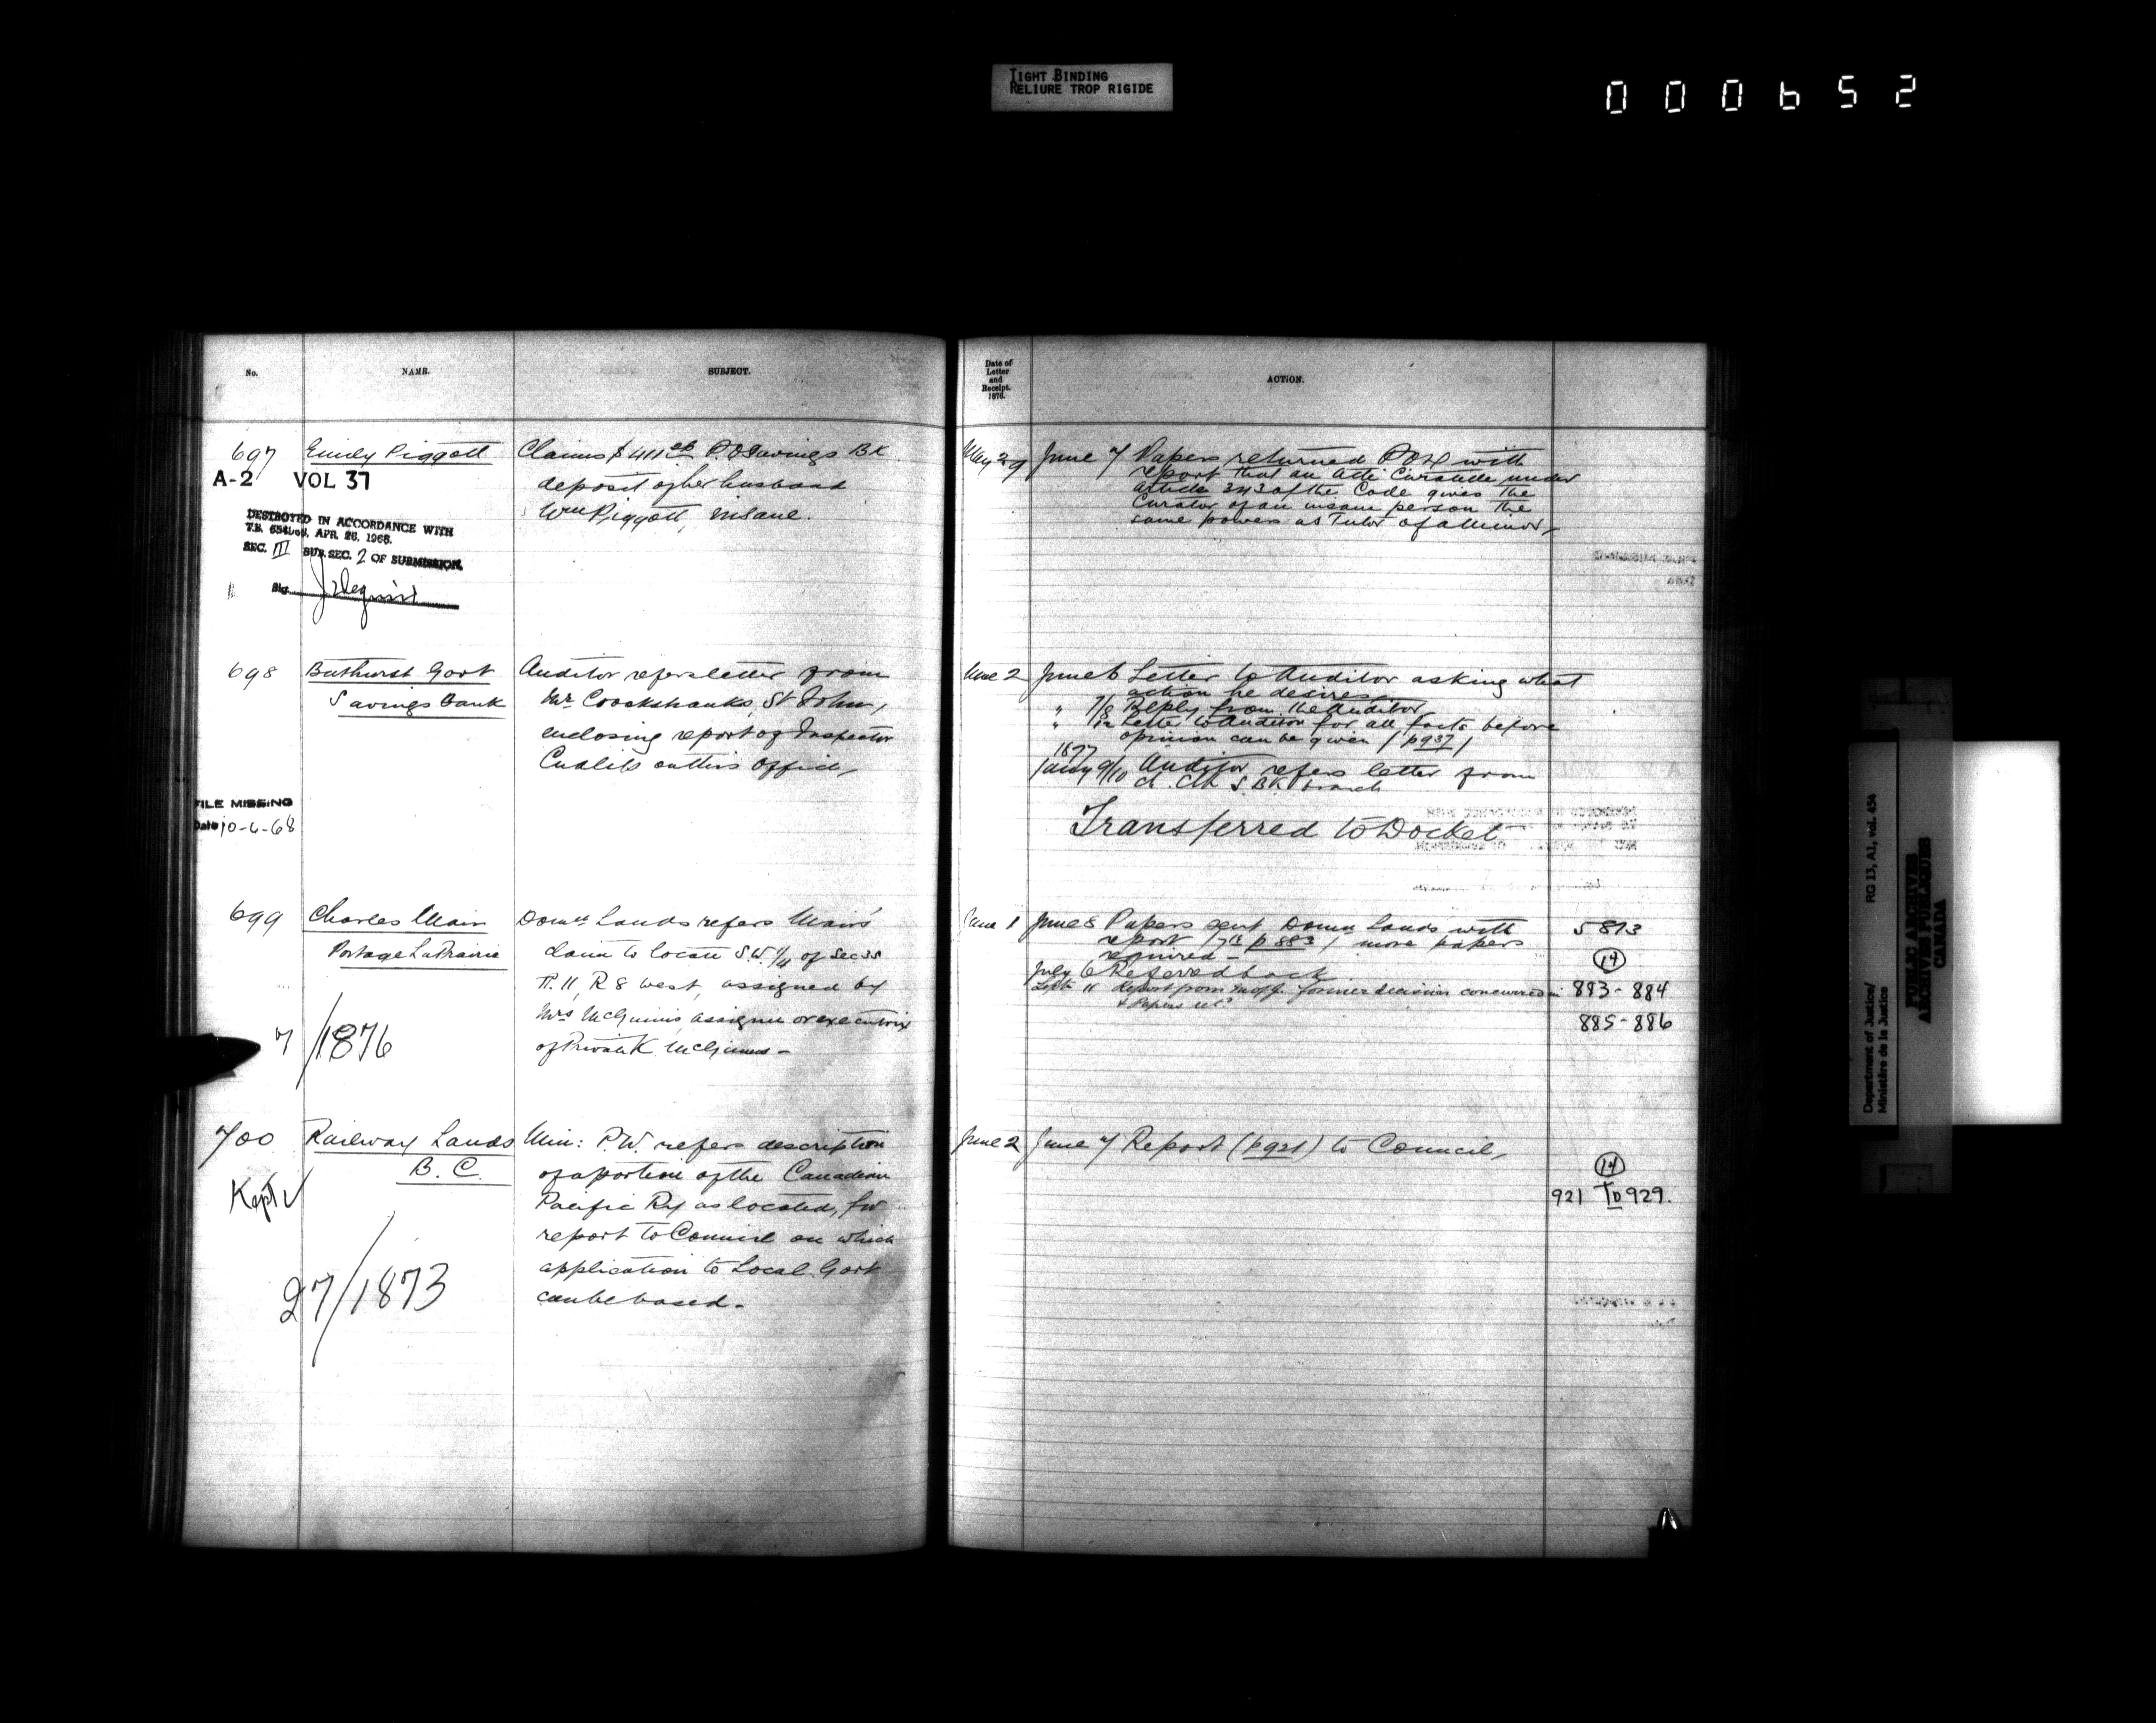 TIGHT BINDING
RELIURE TROP RIGIDE
000652
No.
NAME.
SUBJECT.
697
Emily Piggott
Claims $411 P.O Savings Bk
deposit of her husband
Wm Piggott, insane.
A-2 VOL 37
DESTROYED IN ACCORDANCE WITH
T.B. APR. 26, 1968.
SEC. III SUB. SEC. 2 OF SUBMISSION
Sig.
698
Bathurst Govt
Savings Bank
Auditor refers letter from
Mr Crookshanks, St John,
enclosing report of Inspector
on this Office,
FILE MISSING
Date 10-6-68
699
Charles Mair
Portage La Prairie
Domn Lands refers Mair's
claim to locate S.W. 1/4 of Sec 35
Tp. 11, R 8 west, assigned by
Mrs McGinnis, assignee or executrix
of Private K. McGinnis -
7/1876
700
Railway Lands
B.C.
Min: P.W. refers description
of a portion of the Canadian
Pacific Ry as located, for
report to Council on which
application to Local Govt
can be based.
Kept ✓
27/1873
Date of
Letter
and
Receipt.
1876.
ACTION.
May 29
June 7 Papers returned with
report that an Acte Curatelle under
article 343 of the Code gives the
Curator of an insane person the
same powers as Tutor of a minor,
June 2
June 6 Letter to Auditor asking what
action he desires,
" 7/8 Reply from the Auditor,
" 12 Letter to Auditor for all facts before
opinion can be given (p 937)
1877
Jany 9/10 Auditor refers letter from
Ch. Clk S. Bk branch
Transferred to Docket
June 1
June 8 Papers sent Domn Lands with
report (7th p 883) more papers
required -
July 6 Referred back
Septr 11 Report from M of J. former decision concurred in
& Papers retd
5873
(14)
883 - 884
885 - 886
June 2
June 7 Report (p 921) to Council,
(14)
921 To 929.
Department of Justice/
Ministère de la Justice
RG 13, A1, vol. 454
PUBLIC ARCHIVES
ARCHIVES PUBLIQUES
CANADA